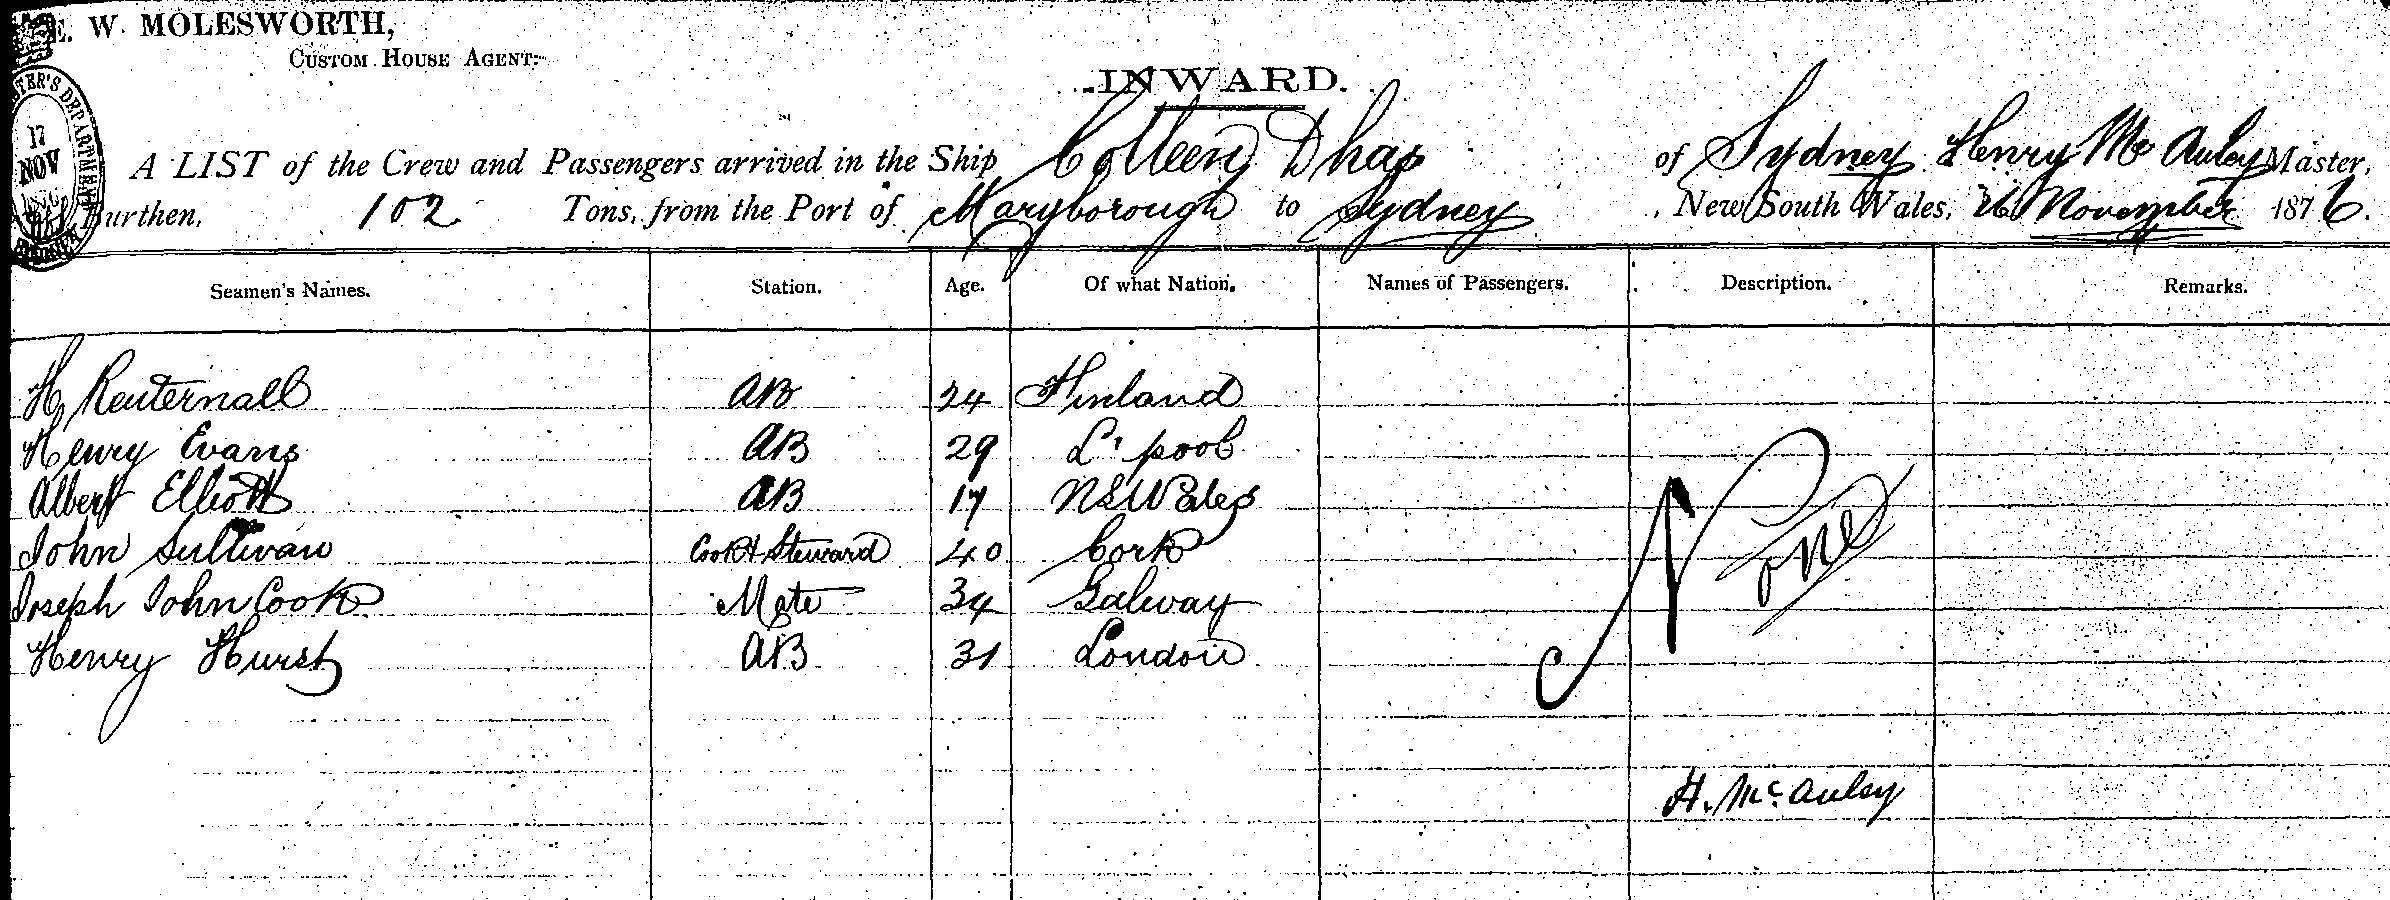 E. W. MOLESWORTH,
CUSTOM HOUSE AGENT.
INWARD.
17
NOV
A LIST of the Crew and Passengers arrived in the Ship Colleen Dhas of Sydney Henry Mc Auley Master,
Burthen, 102 Tons, from the Port of Maryborough to Sydney, New South Wales, 16 November 1876.
Seamen's Names. Station. Age. Of what Nation. Names of Passengers. Description. Remarks.
H Reuternall AB 24 Finland
Henry Evans AB 29 L'pool
Albert Elliott AB 17 NSWales
John Sullivan Cook & Steward 40 Cork
Joseph John Cook Mate 34 Galway
Henry Hurst AB 31 London
H. McAuley